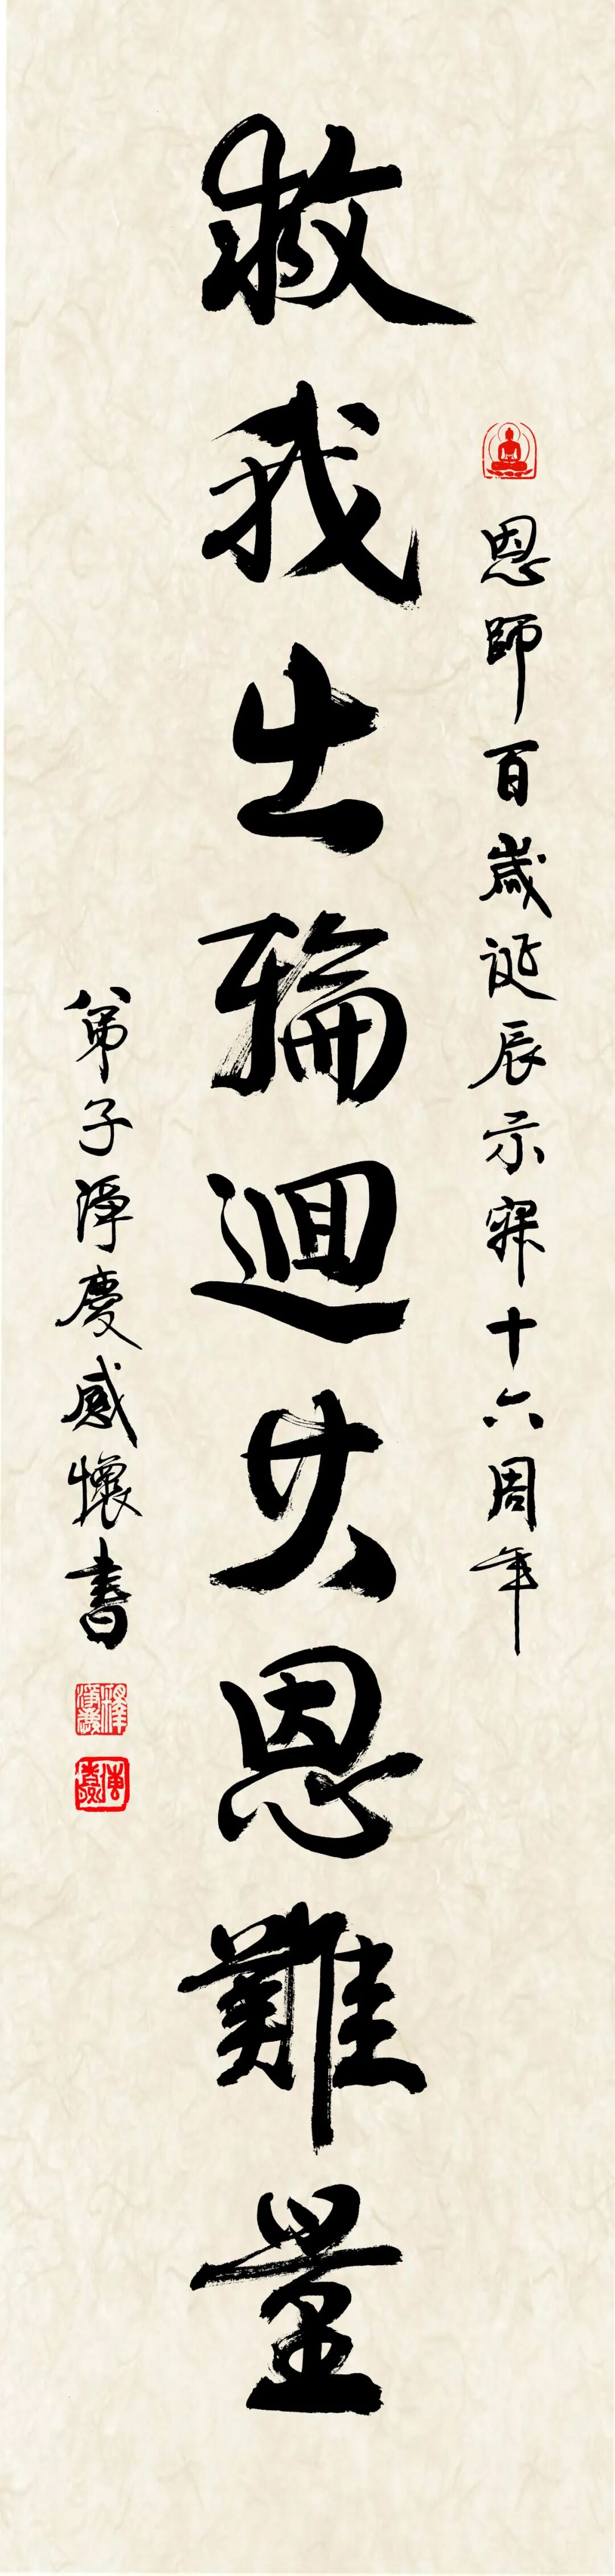 恩師百歲誕辰示寂十六周年
救我出輪迴其恩難量
弟子淨慶感懷書
釋淨慶